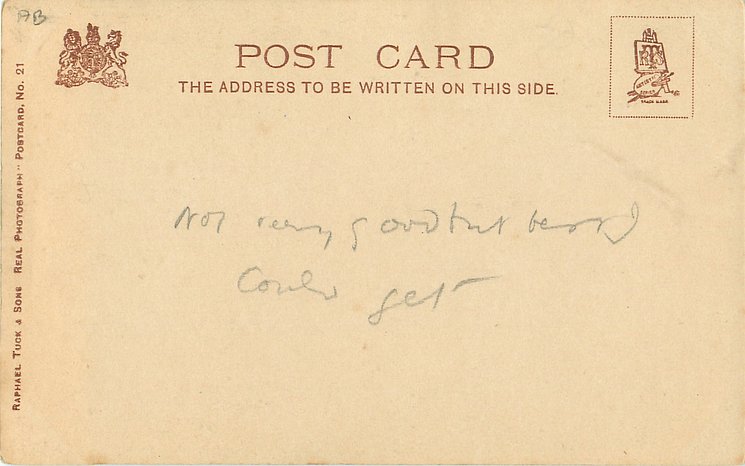 AB
POST CARD
THE ADDRESS TO BE WRITTEN ON THIS SIDE.
RTS
ARTISTIC
SERIES
TRADE MARK
RAPHAEL TUCK & SONS REAL PHOTOGRAPH" POSTCARD, No. 21
Not very good but best I
Could get